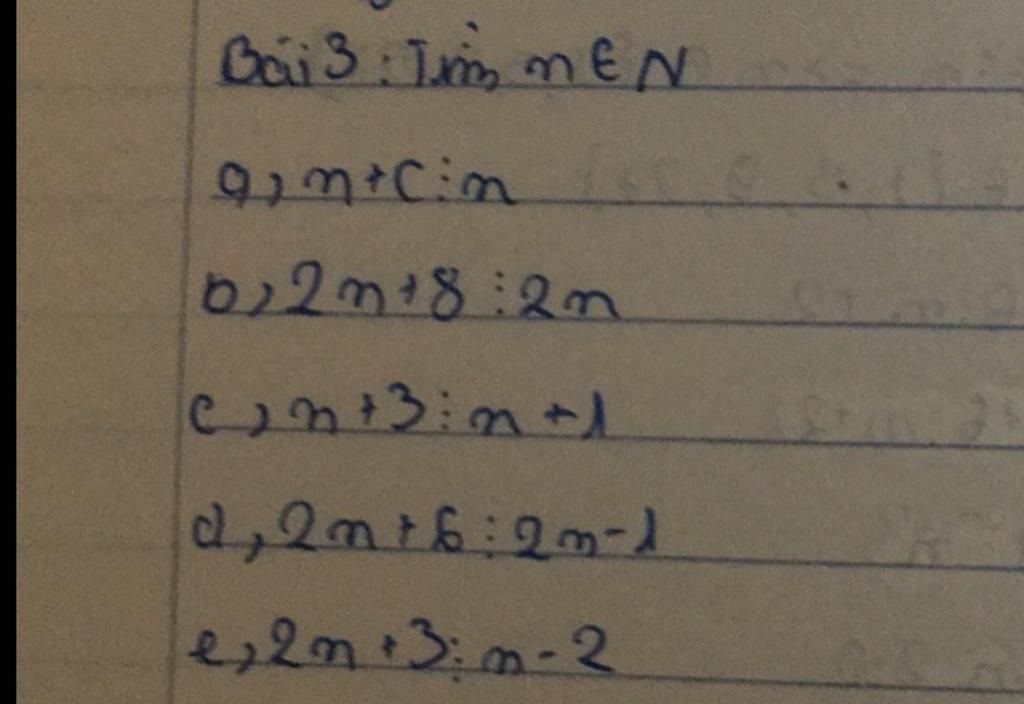 Bài 3: Tìm n ∈ N
a, n+6⋮n
b, 2n+8⋮2n
c, n+3⋮n+1
d, 2n+6⋮2n-1
e, 2n+3⋮n-2